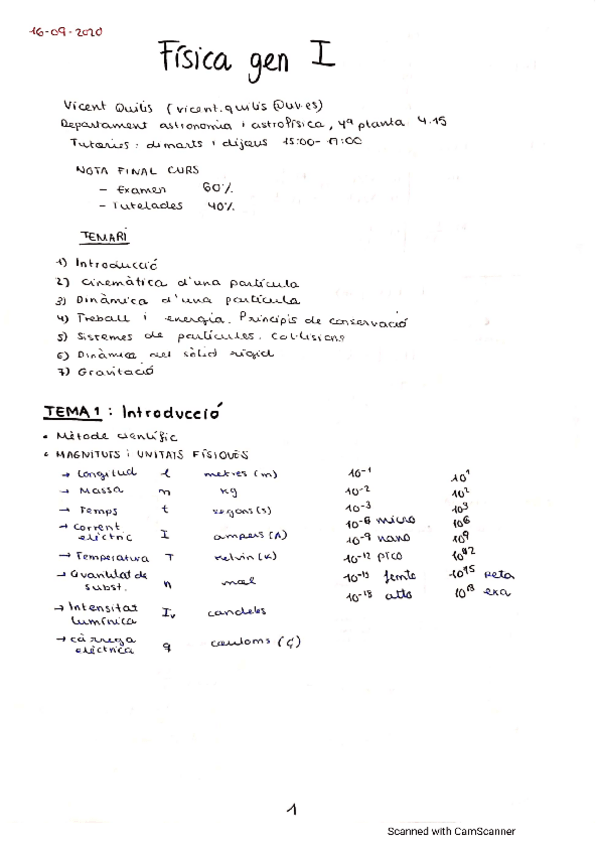 16-09-2020
Física gen I
Vicent Quilis (vicent.quilis@uv.es)
Departament astronomia i astrofísica, 4ª planta 4.15
Tutories: dimarts i dijous 15:00-17:00
NOTA FINAL CURS
- Examen 60%
- Tutelades 40%
TEMARI
1) Introducció
2) Cinemàtica d'una partícula
3) Dinàmica d'una partícula
4) Treball i energia. Principis de conservació
5) Sistemes de partícules. Col·lisions
6) Dinàmica del sòlid rígid
7) Gravitació
TEMA 1: Introducció
• Mètode científic
• MAGNITUTS i UNITATS FÍSIQUES
→ Longitud l metres (m) 10⁻¹ 10¹
→ Massa m kg 10⁻² 10²
→ Temps t segons (s) 10⁻³ 10³
→ Corrent elèctric I ampers (A) 10⁻⁶ micro 10⁶
10⁻⁹ nano 10⁹
→ Temperatura T kelvin (K) 10⁻¹² pico 10¹²
→ Quantitat de subst. n mol 10⁻¹⁵ femto 10¹⁵ peta
10⁻¹⁸ atto 10¹⁸ exa
→ Intensitat lumínica Iv candelas
→ càrrega elèctrica q couloms (C)
1
Scanned with CamScanner